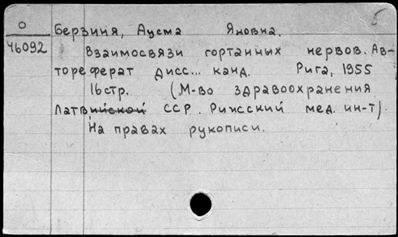 О
46092
5
Берзиня, Аусма Яновна.
Взаимосвязи гортанных нервов. Ав-
тореферат дисс... канд. Рига, 1955
16стр. (М-во здравоохранения
Латвийской ССР. Рижский мед. ин-т).
На правах рукописи.